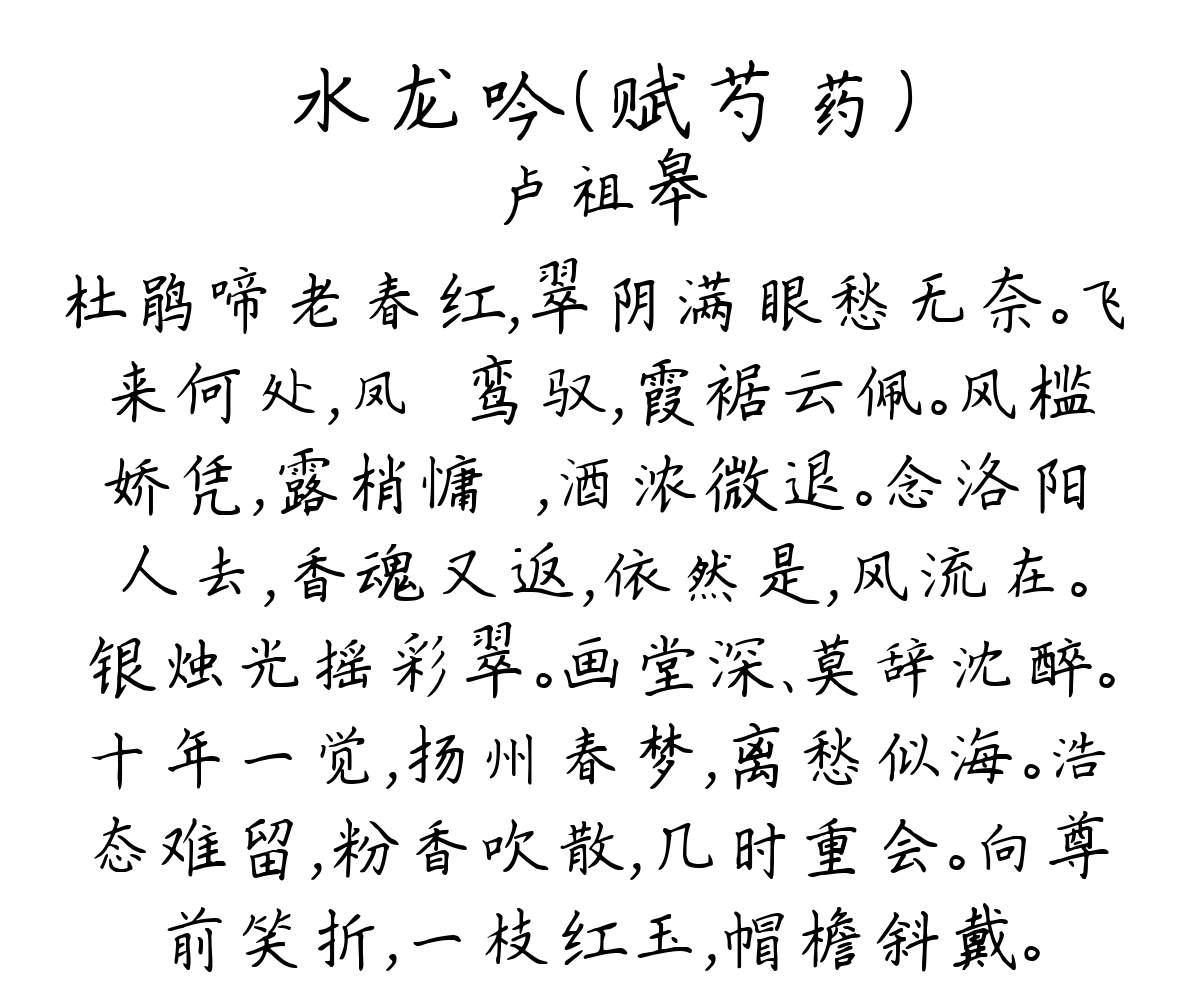 水龙吟(赋芍药)
卢祖皋
杜鹃啼老春红,翠阴满眼愁无奈。飞
来何处,凤 鸾驭,霞裾云佩。风槛
娇凭,露梢慵 ,酒浓微退。念洛阳
人去,香魂又返,依然是,风流在。
银烛光摇彩翠。画堂深、莫辞沈醉。
十年一觉,扬州春梦,离愁似海。浩
态难留,粉香吹散,几时重会。向尊
前笑折,一枝红玉,帽檐斜戴。